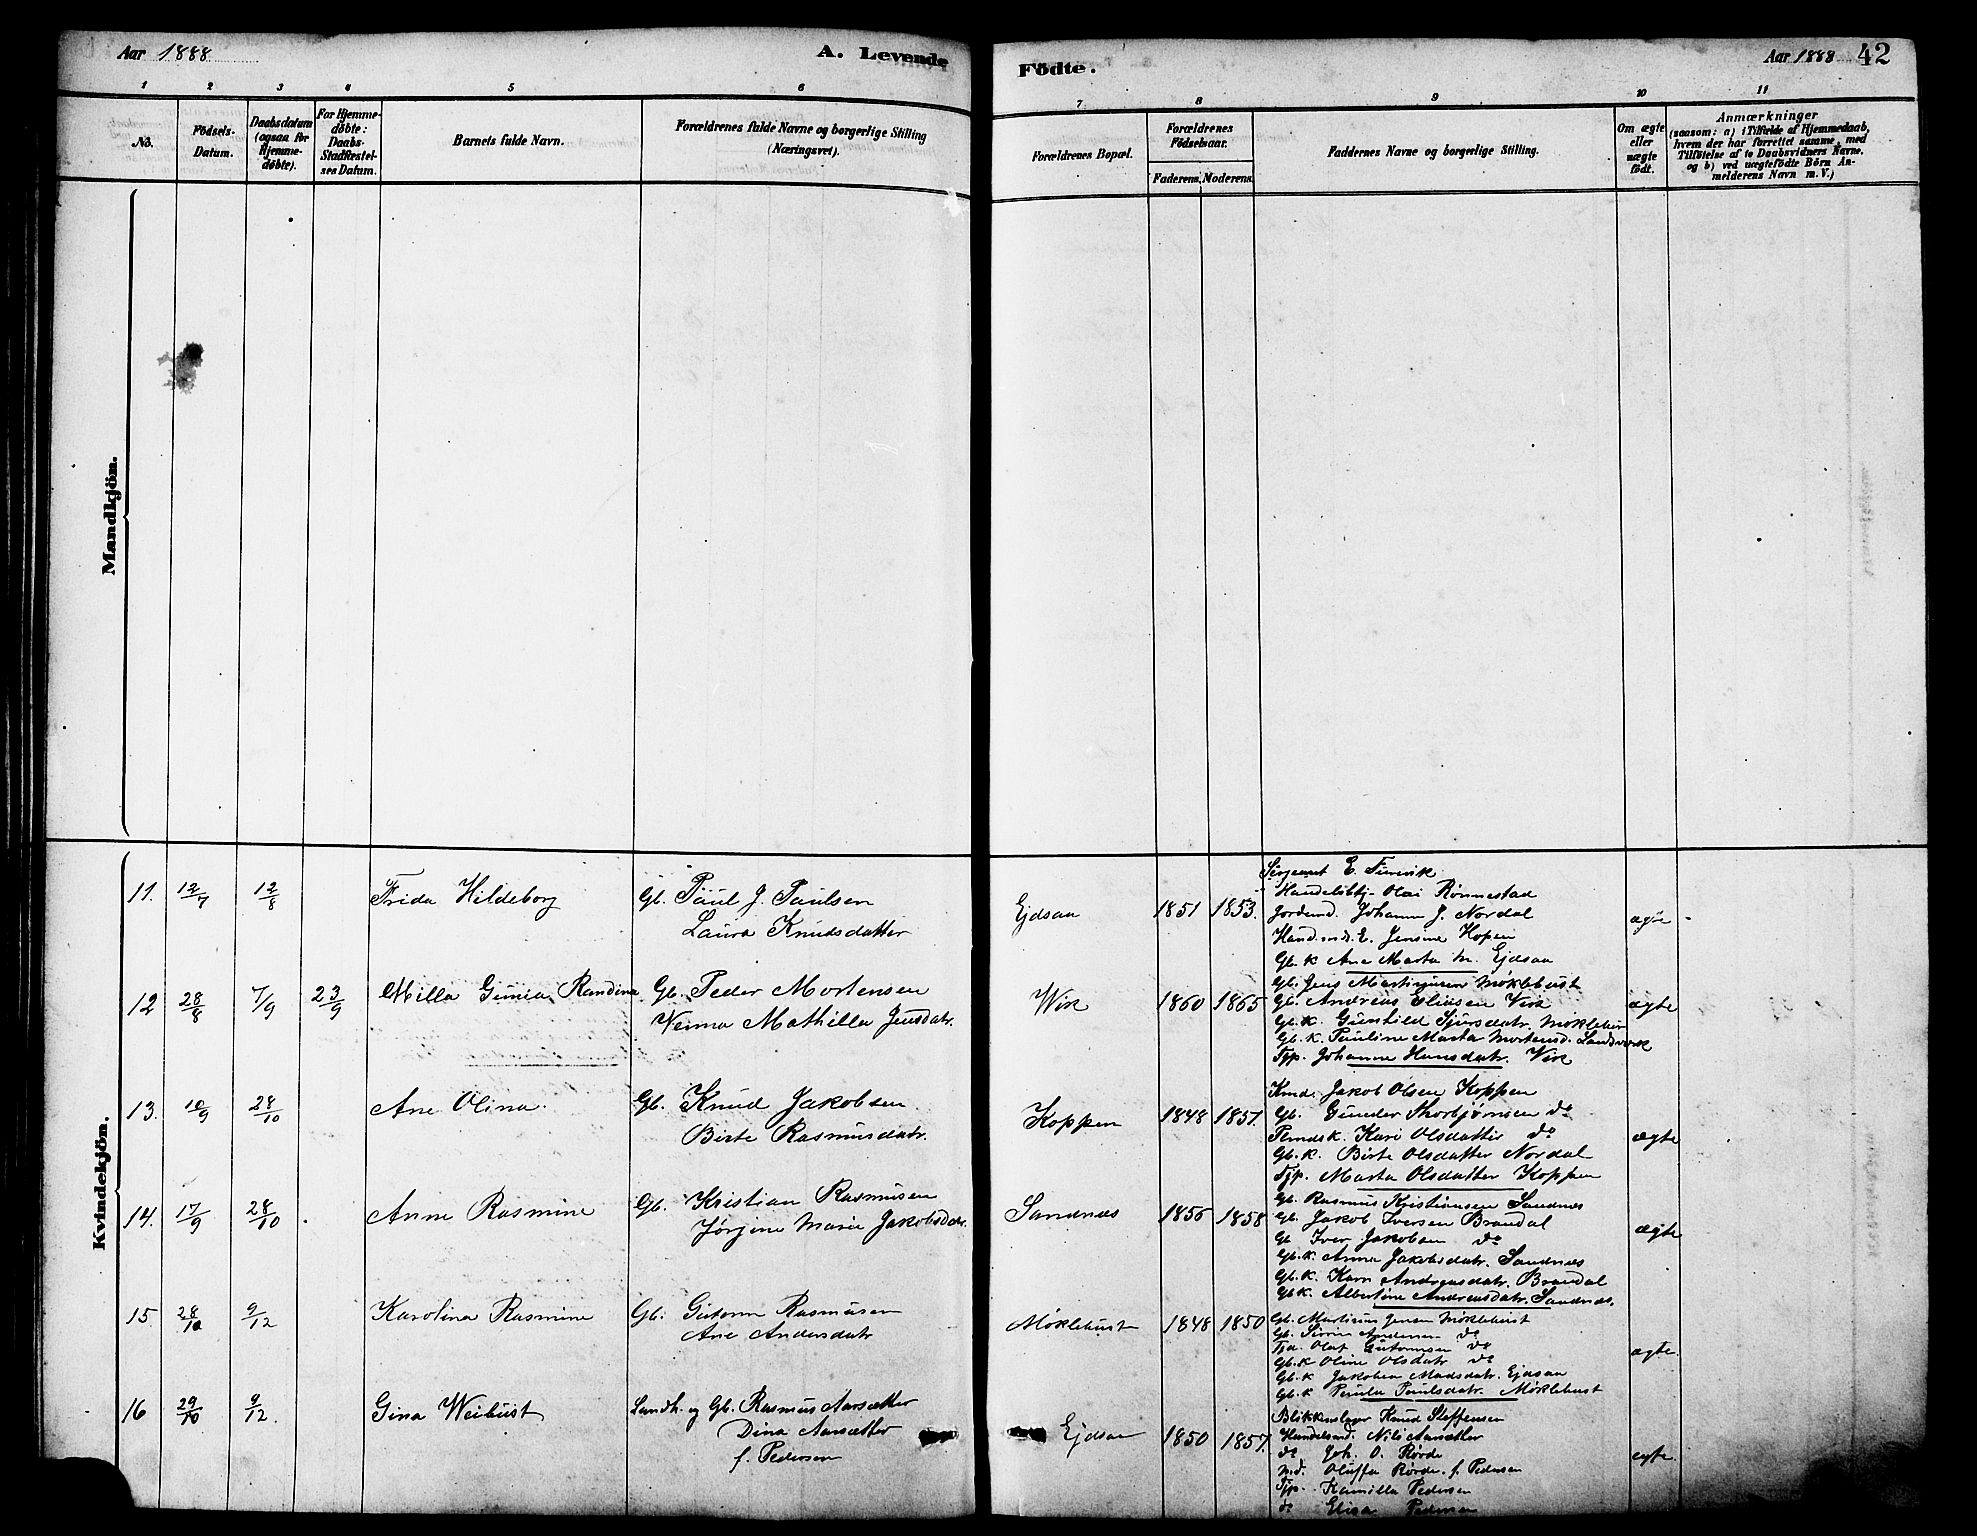 Aar 1888
A. Levende
Födte.
Aar 1888
42
1 2 3 4 5 6
7 8 9 10 11
No.
Födsels-
Datum.
Daabsdatum
(ogsaa for
Hjemme-
döbte).
For Hjemme-
döbte:
Daabs-
Stadfæstel-
ses Datum.
Barnets fulde Navn.
Forældrenes fulde Navne og borgerlige Stilling
(Næringsvei).
Forældrenes Bopæl.
Forældrenes
Födselsaar.
Faderens. Moderens.
Faddernes Navne og borgerlige Stilling.
Om ægte
eller
uægte
födt.
Anmærkninger
(saasom: a) i Tilfælde af Hjemmedaab,
hvem der har forrettet samme, med
Tilföielse af to Daabsvidners Navne.
og b) ved uægtefödte Börn An-
melderens Navn m. V.)
Mandkjön.
Kvindekjön.
11. 12/7 12/8 Frida Hildeborg
Gb. Paul J. Paulsen
Laura Knudsdatter
Ejdsaa 1851 1853.
Sergeant E. Furevik
Handelsbtj. Olai Rønnestad
Jordemd. Johanne J. Nordal
Hand.md. E. Jensine Hopen
Gb. k Ane Marta M. Ejdsaa
ægte
12 28/8 7/9 23/9 Milla Gunia Randina
Gb. Peder Mortensen
Weima Mathilla Jensdatr.
Wik 1860 1865
Gb. Jens Martinusen Møklebust
Gb. Andreas Eliasen Wik
Gb. k. Gunhild Sjursdatr. Møklebust
Gb. k. Pauline Marta Mortensd. Landværk
Tjp. Johanne Hansdatr. Wik
ægte
13. 10/9 28/10 Ane Olina
Gb. Knud Jakobsen
Birte Rasmusdatr.
Koppen 1848 1857.
Kmd. Jakob Olsen Koppen
Gb. Gunder Thorbjørnsen do
Kari Olsdatter do
Gb. k. Birte Olsdatter Nordal
Tjp. Marta Olsdatter Koppen
ægte
14. 17/9 28/10 Anne Rasmine
Gb. Kristian Rasmusen
Jørgine Marie Jakobsdatr.
Sandnes 1856 1858
Gb. Rasmus Kristiansen Sandnes
Gb. Jakob Iversen Brandal
Gb Iver Jakobsen do
Gb. k. Anna Jakobsdatr. Sandnes
Gb. k. Karn Andreasdatr. Brandal
Gb. k. Albertine Andreasdatr. Sandnes.
ægte
15. 28/10 9/12 Karolina Rasmine
Gb. Gutorm Rasmusen
Ane Andersdatr
Møklebust 1848 1850
Gb. Martinus Jensen Møklebust
Gb. Andersen do
Olaf Gutormsen do
Gb. k Oline Olsdatr do
Gb. k Jakobea Madsdatr. Ejdsaa
Gb. k Paulsdatr. Møklebust
ægte.
16 29/10 9/12. Gina Weibust
Landh. og Gb. Rasmus Aarsætter
Dina Aarsætter
f. Pedersen
Ejdsaa 1850 1857.
Blikkenslager Knud Steffensen
Handelsmd. Nils Aarsætter
do Joh. O. Rørde
Md. Oluffa Rørde. f. Pedersen
Tjp. Kamilla Pedersen
do Elisa Pedersen
egte.